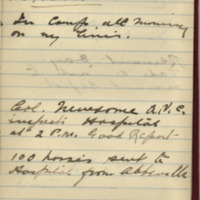 In Camp all morning
on my lines.
Col. Newsome A.V.C.
inspects Hospital
at 2 P.m. Good Report
100 horses sent to
Hospital from Abbeville